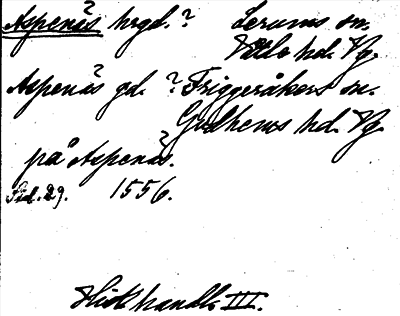 Aspenäs hrgd.? Lerums sn.
Vättle hd. Vg.
Aspenäs gd. ? Friggeråkers sn.
Gudhems hd. Vg.
på Aspenäs.
Sid. 29. 1556.
Hist handl. III.